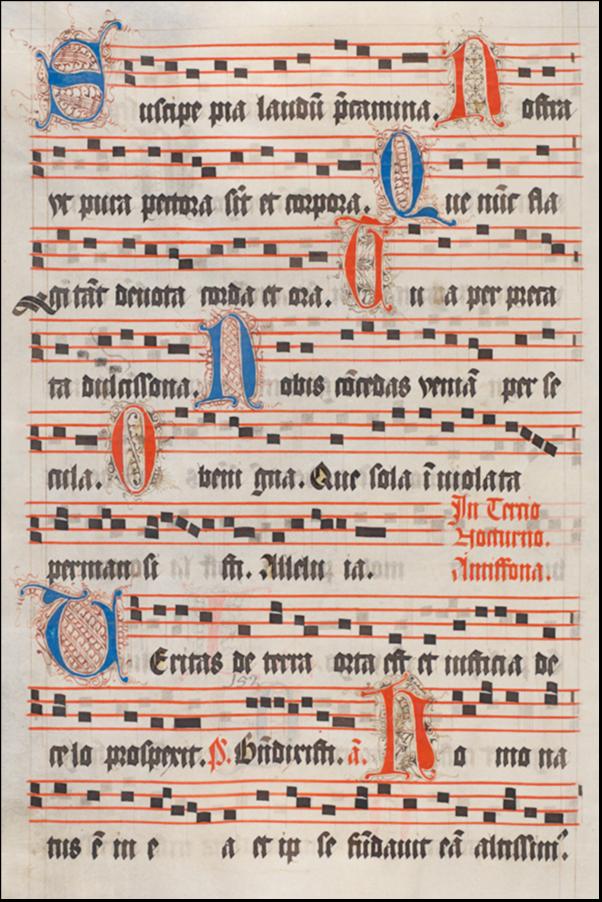 Suscipe pia laudū p̄camina. Nostra
vt pura pectora sīt et corpora. Que nūc fla
gitāt deuota corda et ora. Tu a per preca
ta dulcissona. Nobis cōcedas veniā per se
cula. O beni gna. Que sola īuiolata
permansi sti. Allelu ia.
In Tertio
Nocturno.
Antiffona.
VEritas de terra orta est et iusticia de
157
celo prospexit. P. Bn̄dixisti. a. No mo na
tus ē in e a et ip se fūdauit eā altissim᷒.